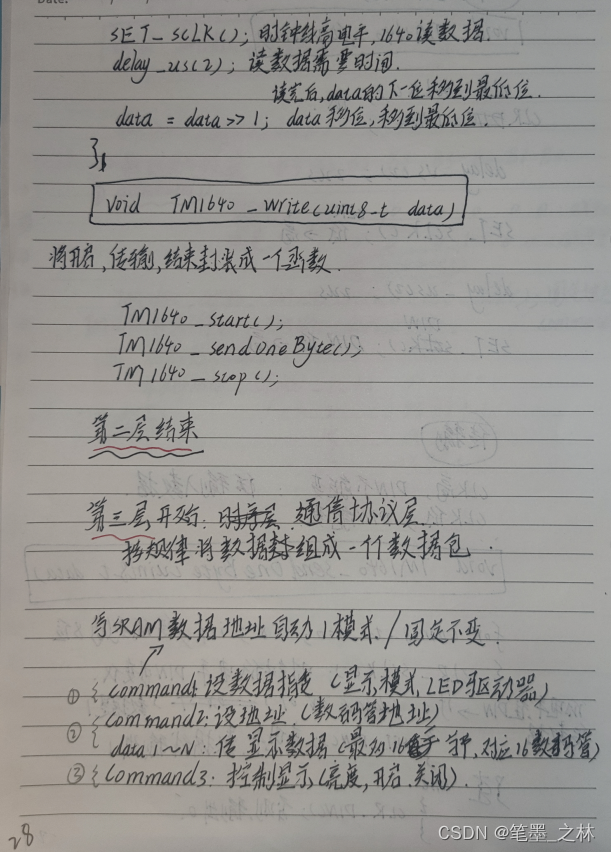 SET_SCLK(); 时钟线高电平,1640读数据.
delay_us(2); 读数据需要时间.
读完后,data的下一位移到最低位.
data = data >> 1; data移位,移到最低位.
}
void TM1640_write(uint8_t data)
将开启,传输,结束封装成一个函数.
TM1640_start();
TM1640_sendOneByte();
TM1640_stop();
第二层结束
第三层开始: 通信协议层.
按规律将数据组成一个数据包.
写SRAM数据地址自动1模式./固定不变.
① { command1:设数据指令,(显示模式,LED驱动器)
② { command2:设地址.(数码管地址)
data 1~N: 传显示数据(最多16字节,对应16数码管)
③ { command3: 控制显示(亮度,开启.关闭).
28
CSDN @笔墨_之林